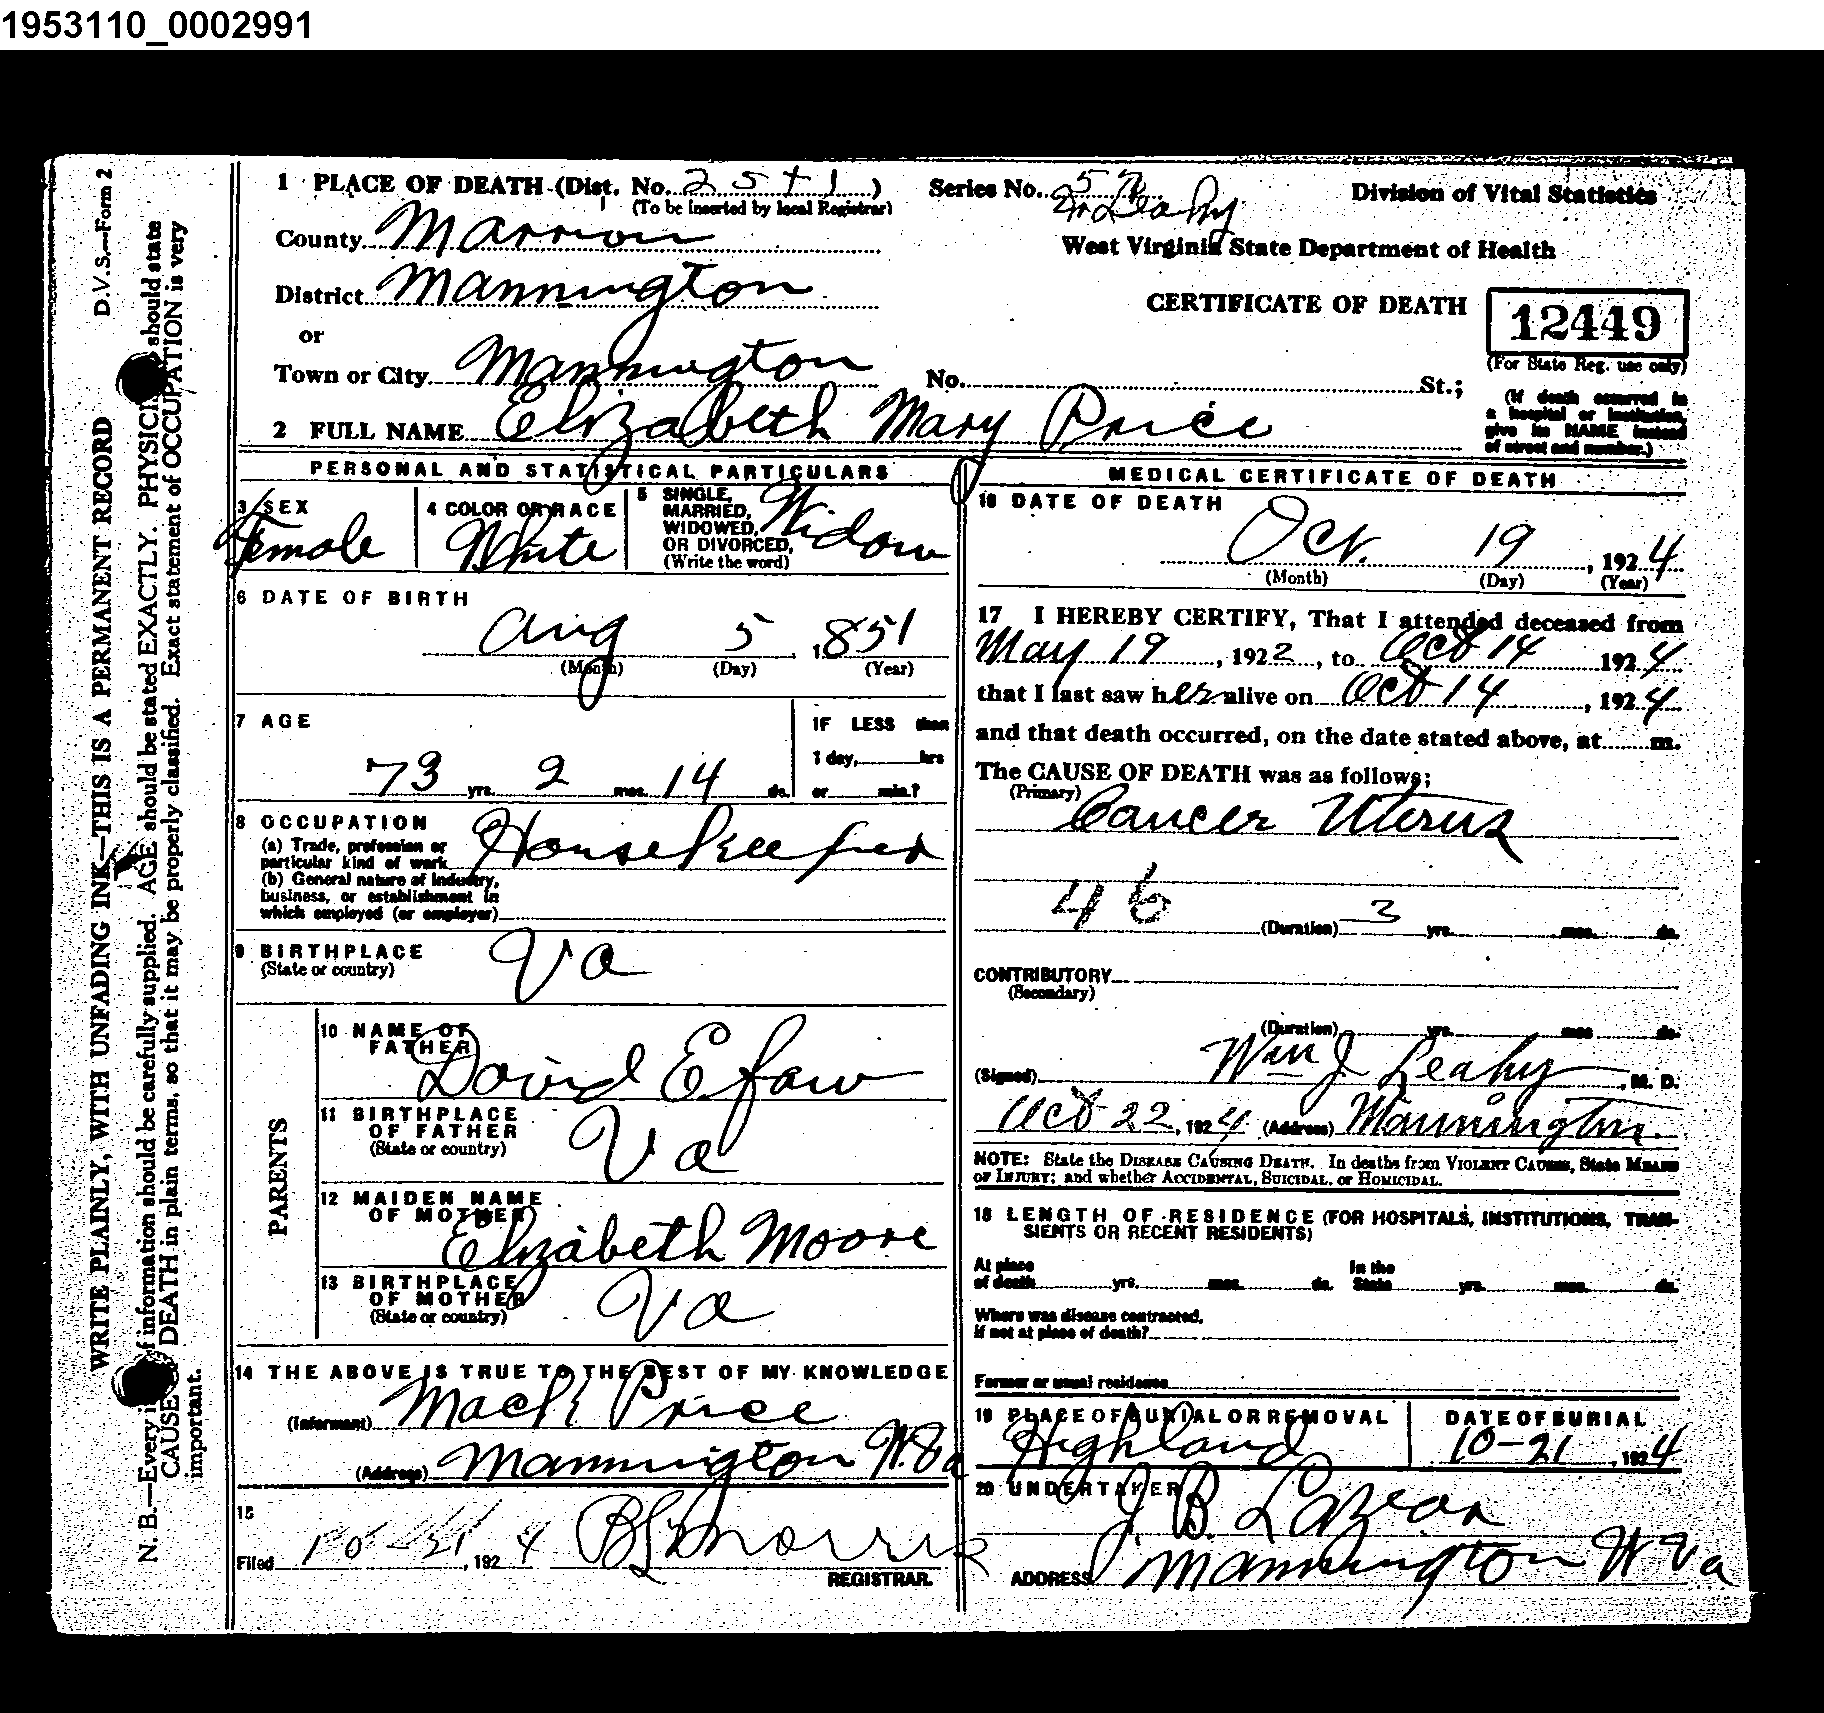 1953110_0002991
D.V.S.—Form 2
WRITE PLAINLY, WITH UNFADING INK—THIS IS A PERMANENT RECORD
N. B.—Every information should be carefully supplied. AGE should be stated EXACTLY. PHYSICI should state
CAUSE DEATH in plain terms, so that it may be properly classified. Exact statement of OCCUPATION is very
important.
1 PLACE OF DEATH (Dist. No. 2541)
(To be inserted by local Registrar)
County Marrion
District Mannington
or
Town or City Mannington
Series No. 57
Dr Leahy
Division of Vital Statistics
West Virginia State Department of Health
CERTIFICATE OF DEATH
12449
(For State Reg. use only)
No. St.;
(If death occurred in
a hospital or institution,
give its NAME instead
of street and number.)
2 FULL NAME Elizabeth Mary Price
PERSONAL AND STATISTICAL PARTICULARS
3 SEX
Female
4 COLOR OR RACE
White
5 SINGLE,
MARRIED,
WIDOWED,
OR DIVORCED,
(Write the word)
Widow
6 DATE OF BIRTH
Aug 5 1851
(Month) (Day) (Year)
7 AGE
73 yrs. 2 mos. 14 ds.
IF LESS than
1 day, hrs
or min.?
8 OCCUPATION
(a) Trade, profession or
particular kind of work
Housekeeper
(b) General nature of industry,
business, or establishment in
which employed (or employer)
9 BIRTHPLACE
(State or country)
Va
PARENTS
10 NAME OF
FATHER
David Efaw
11 BIRTHPLACE
OF FATHER
(State or country)
Va
12 MAIDEN NAME
OF MOTHER
Elizabeth Moore
13 BIRTHPLACE
OF MOTHER
(State or country)
Va
14 THE ABOVE IS TRUE TO THE BEST OF MY KNOWLEDGE
(Informant) Mack Price
(Address) Mannington W.Va
15
Filed 10-21, 1924
REGISTRAR.
MEDICAL CERTIFICATE OF DEATH
16 DATE OF DEATH
Oct. 19, 1924
(Month) (Day) (Year)
17 I HEREBY CERTIFY, That I attended deceased from
May 19, 1922, to Oct 14 1924
that I last saw her alive on Oct 14, 1924
and that death occurred, on the date stated above, at m.
The CAUSE OF DEATH was as follows:
(Primary)
Cancer Uterus
46
(Duration) 3 yrs. mos. ds.
CONTRIBUTORY
(Secondary)
(Duration) yrs. mos. ds.
(Signed) Wm J Leahy, M. D.
Oct 22, 1924 (Address) Mannington.
NOTE: State the DISEASE CAUSING DEATH. In deaths from VIOLENT CAUSES, State MEANS
OF INJURY; and whether ACCIDENTAL, SUICIDAL, or HOMICIDAL.
18 LENGTH OF RESIDENCE (FOR HOSPITALS, INSTITUTIONS, TRAN-
SIENTS OR RECENT RESIDENTS)
At place
of death yrs. mos. ds.
In the
State yrs. mos. ds.
Where was disease contracted,
if not at place of death?
Former or usual residence
19 PLACE OF BURIAL OR REMOVAL
Highland
DATE OF BURIAL
10-21, 1924
20 UNDERTAKER
J. B. Lazear
ADDRESS Mannington W Va